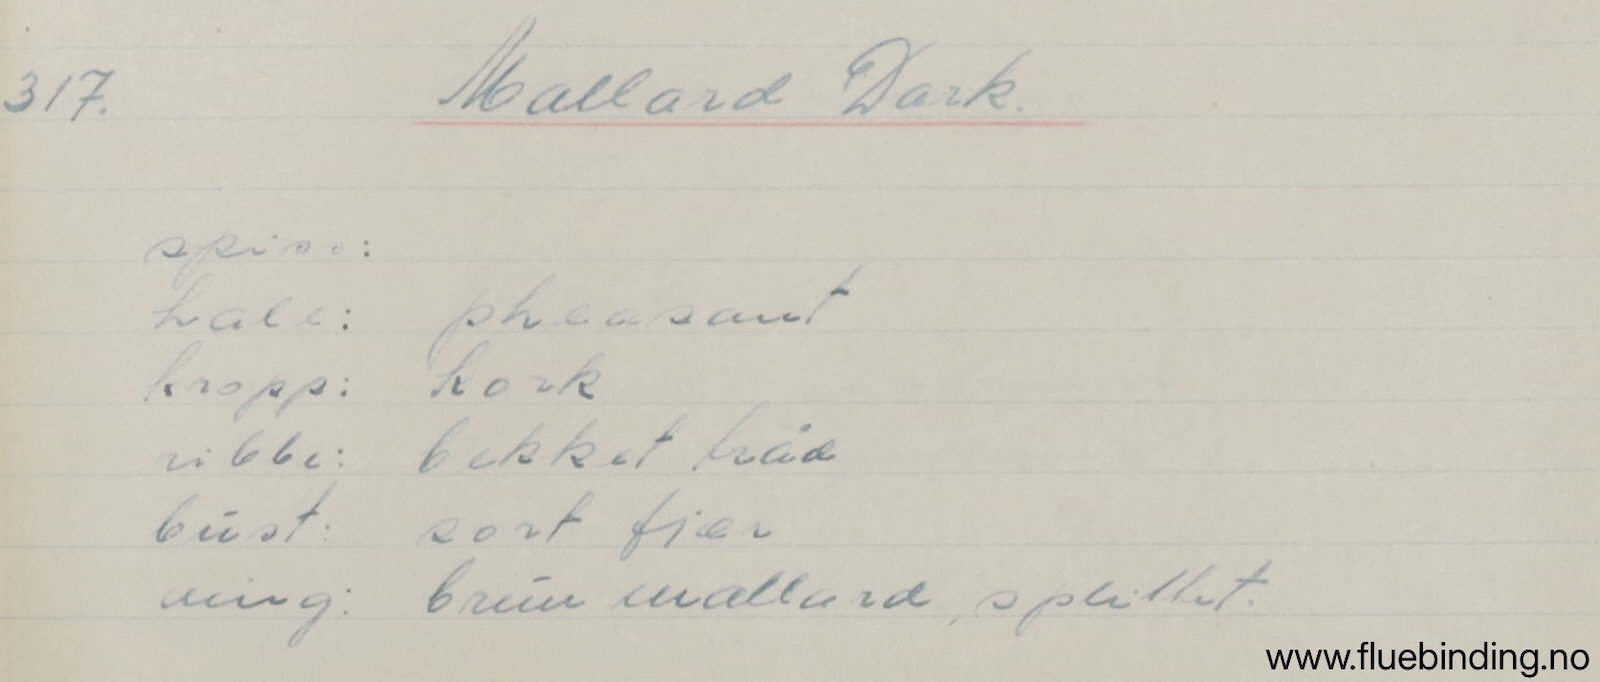 317. Mallard Dark.
spiss:
hale: pheasant
kropp: kork
ribbe: bekket tråd
bust: sort fjær
ving: brun mallard, splittet.
www.fluebinding.no